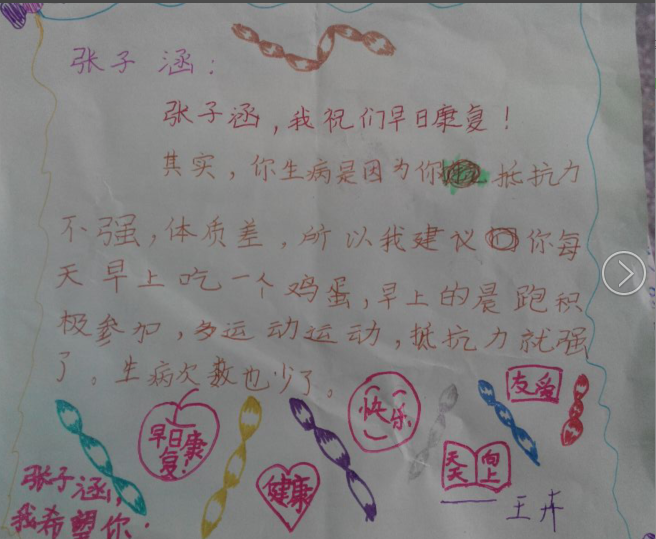 张子涵：
张子涵，我祝们早日康复！
其实，你生病是因为你抵抗力
不强，体质差，所以我建议你每
天早上吃一个鸡蛋，早上的晨跑积
极参加，多运动运动，抵抗力就强
了。生病次数也少了。
早日康
复！
健康
快乐
友爱
天天
向上
——王卉
张子涵，
我希望你：